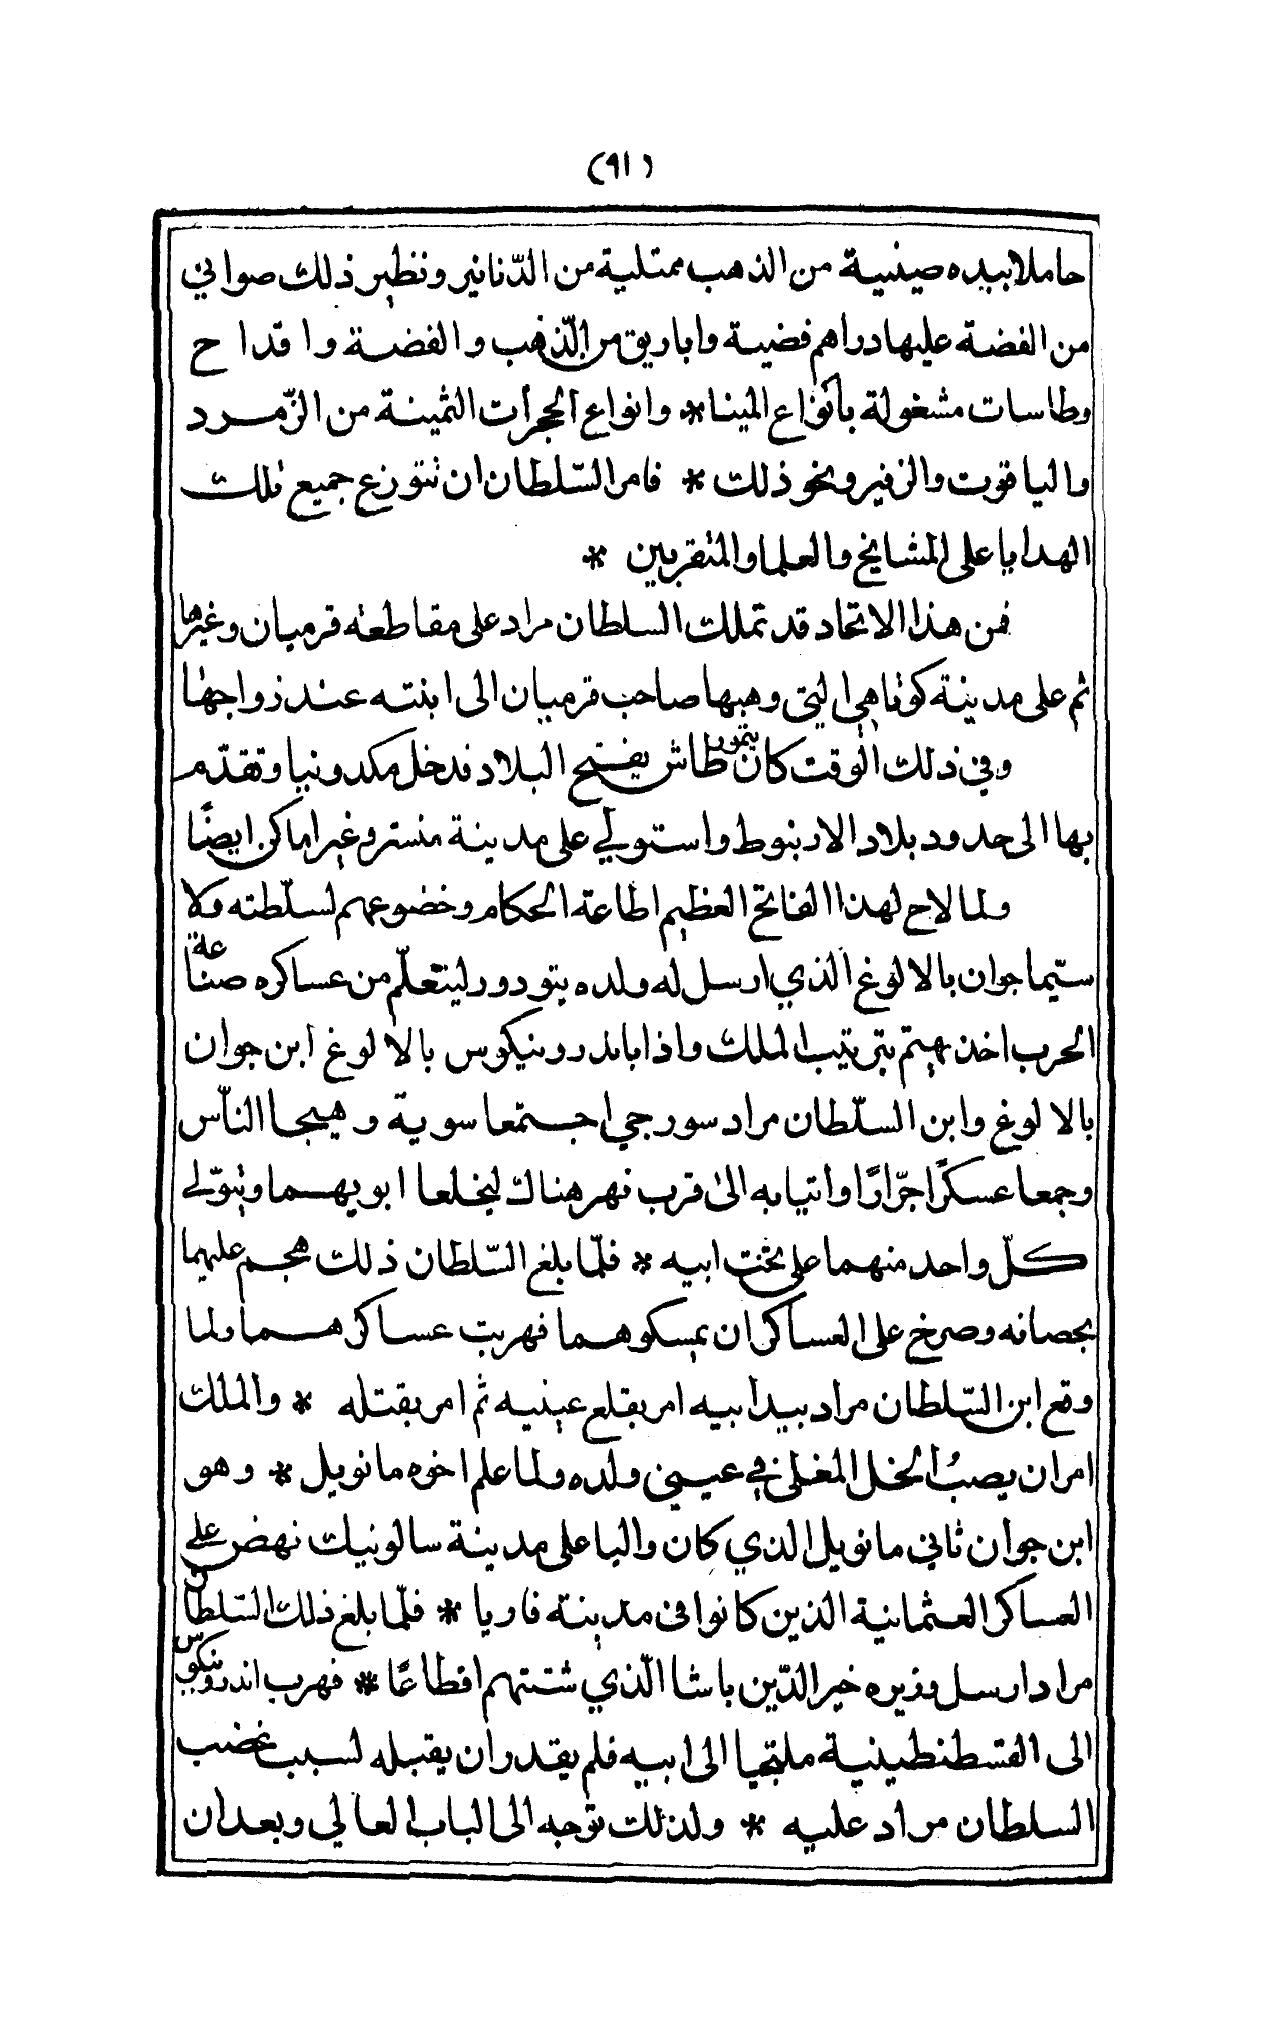 (٩١)
حاملا بيده صينية من الذهب ممتلية من الدّنانير ونظير ذلك صواني
من الفضة عليها دراهم فضية واباريق من الذّهب والفضة واقداح
وطاسات مشغولة بأنواع المينا * وانواع الحجرات الثمينة من الزّمرد
والياقوت والزفير ونحو ذلك * فامر السّلطان ان تتوزع جميع تلك
الهدايا على المشايخ والعلما والمتقربين *
فمن هذا الاتحاد قد تملك السلطان مراد على مقاطعة قرميان وغيرها
ثم على مدينة كوتاهي التي وهبها صاحب قرميان الى ابنته عند زواجها
وفي ذلك الوقت كان تيمورطاش يفتح البلاد فدخل مكدونيا وتقدّم
بها الى حدود بلاد الارنبوط واستولي على مدينة منستر وغير اماكن ايضًا
ولما لاح لهذا الفاتح العظيم اطاعة الحكام وخضوعهم لسلّطته ولا
سيّما جوان بالالوغ الذي ارسل له ولده يتودور ليتعلّم من عساكره صناعة
الحرب اخذ يهتم بترتيب الملك واذا باندرونيكوس بالالوغ ابن جوان
بالالوغ وابن السلّطان مراد سورجي اجتمعا سوية وهيجا النّاس
وجمعا عسكرًا جرّارًا واتيا به الى قرب نهر هناك ليخلعا ابويهما ويتولّي
كلّ واحد منهما على تخت ابيه * فلمّا بلغ السّلطان ذلك هجم عليهما
بحصانه وصرخ على العساكر ان يمسكوهما فهربت عساكرهما ولما
وقع ابن السّلطان مراد بيد ابيه امر بقلع عينيه ثم امر بقتله * والملك
امر ان يصبُ الخل المغلى في عيني ولده ولما علم اخوه مانويل * وهو
ابن جوان ثاني مانويل الذي كان واليا على مدينة سالونيك نهض على
العساكر العثمانية الذين كانوا في مدينة فاريا * فلمّا بلغ ذلك السّلطان
مراد ارسل وزيره خير الدّين باشا الّذي شتتهم اقطاعًا * فهرب اندرونيكوس
الى القسطنطينية ملتجيا الى ابيه فلم يقدر ان يقبله لسبب غضب
السلطان مراد عليه * ولذلك توجه الى الباب العالي وبعد ان